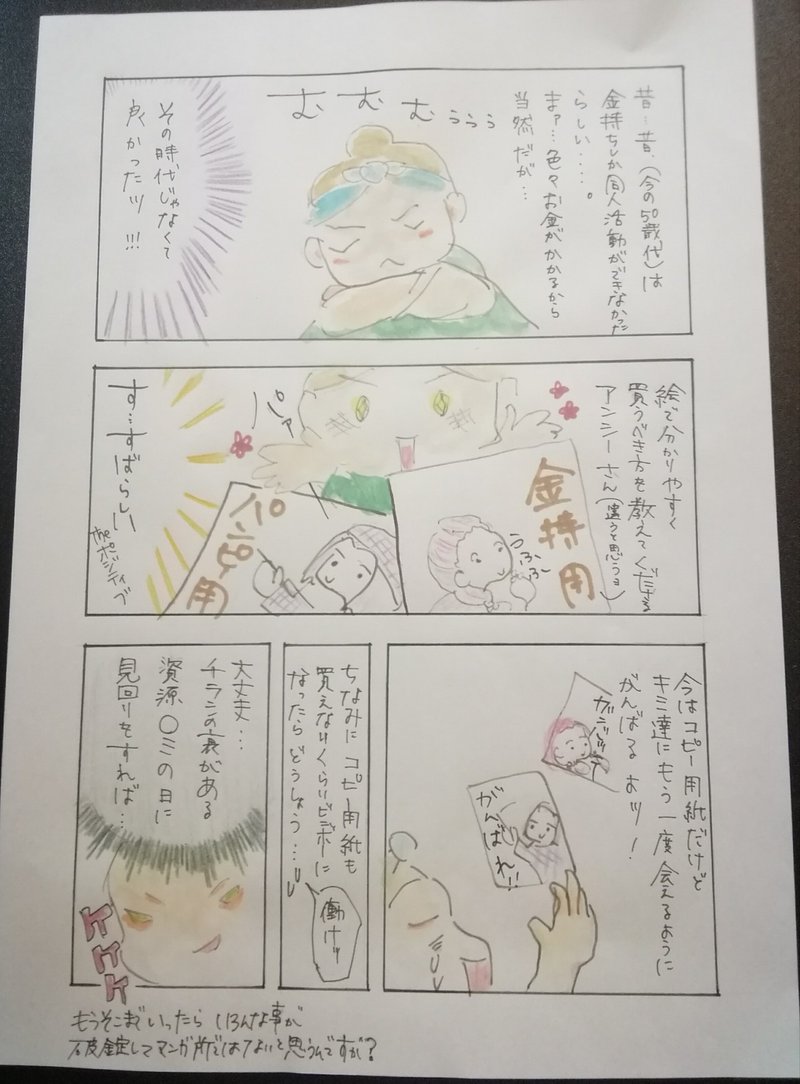 昔…昔、(今の50歳代)は
金持ちしか同人活動ができなかった
らしい….。
まァ…色々お金がかかるから
当然だが…
むむむぅぅぅ
その時代じゃなくて
良かったッ!!!
絵で分かりやすく
買うべき方を教えてくださる
アンシーさん(違うと思うョ)
パァ
金持用
うふふ〜
用
す…すばらしい
theポジティブ
今はコピー用紙だけど
キミ達にもう一度会えるように
がんばるよッ!
がんばれ!!
ちなみにコピー用紙も
買えないくらいビンボーに
なったらどうしよう…
働けッ
大丈夫…
チラシの裏がある
資源〇ミの日に
見回りをすれば…
ケケケ
もうそこまでいったらいろんな事が
破錠してマンガ所ではないと思うんですが?